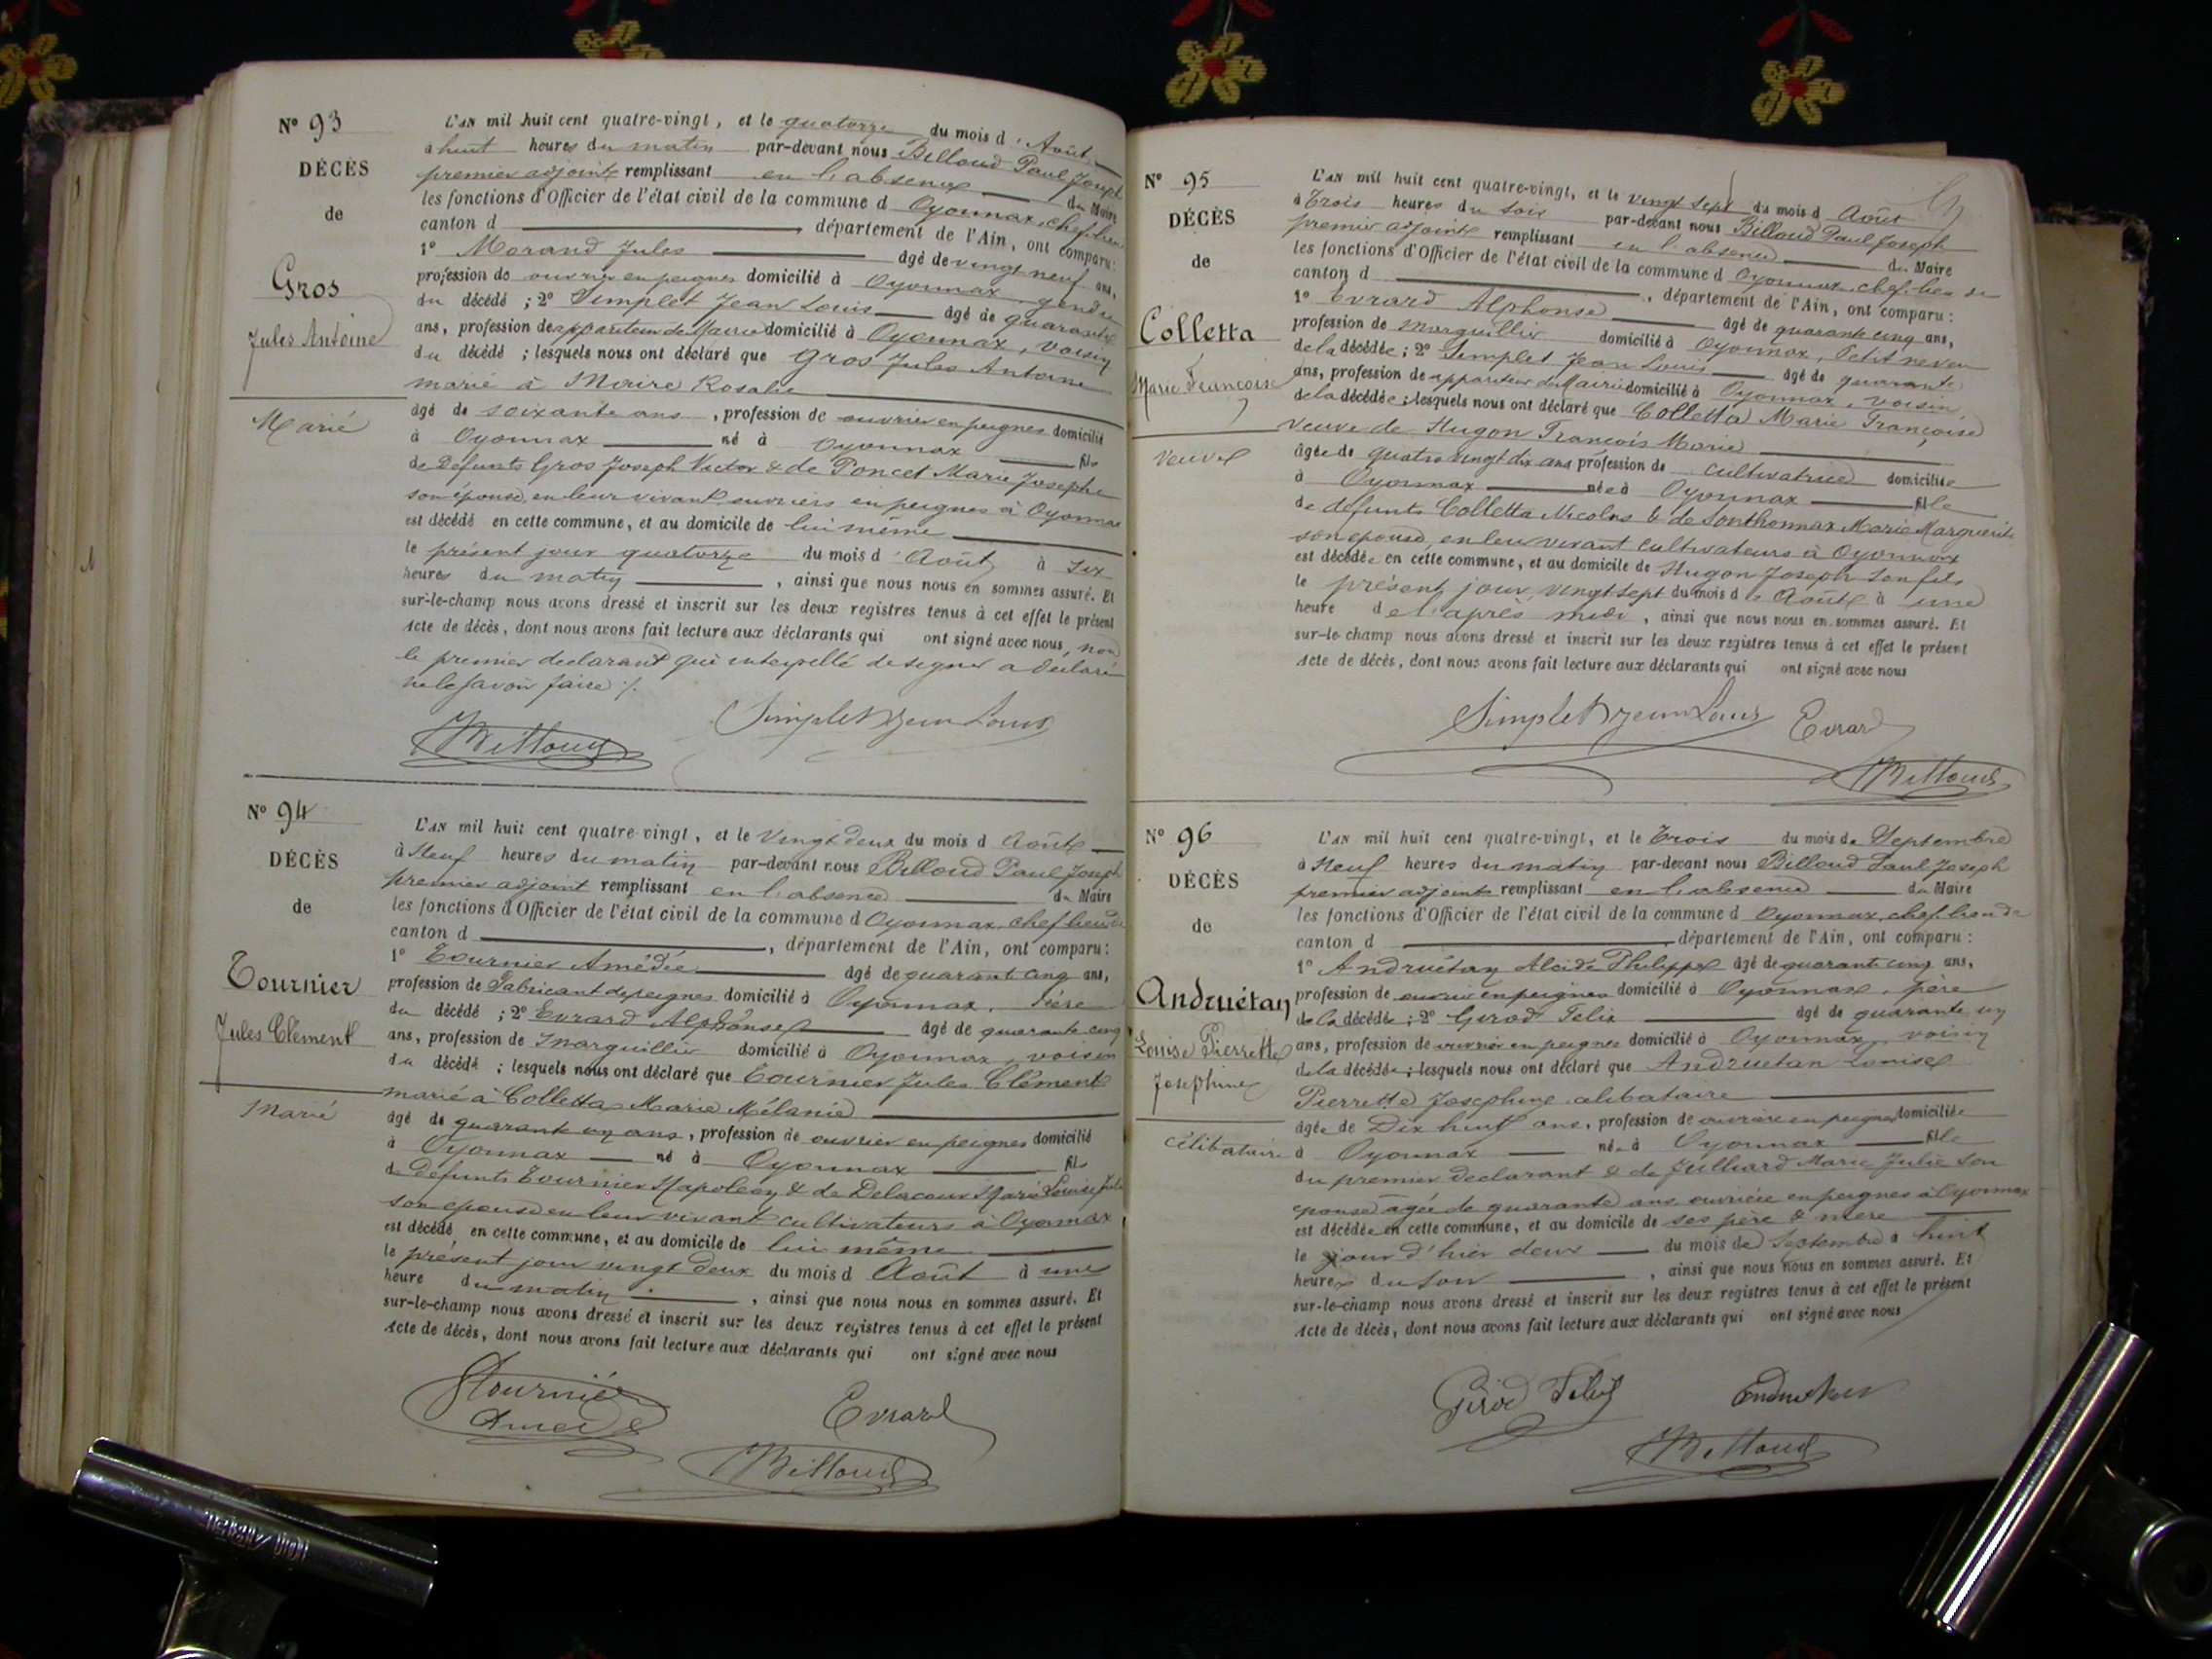 N° 93
DÉCÈS
de
Gros
Jules Antoine
Marié
L'AN mil huit cent quatre-vingt, et le quatorze du mois d'Août
à huit heures du matin par-devant nous Billoud Paul Joseph
premier adjoint remplissant en l'absence du Maire
les fonctions d'Officier de l'état civil de la commune d Oyonnax, chef lieu
canton d , département de l'Ain, ont comparu:
1° Morand Jules âgé de vingt neuf ans,
profession de ouvrier en peignes domicilié à Oyonnax gendre
du décédé ; 2° Simplet Jean Louis âgé de quarante
ans, profession de appariteur de Mairie domicilié à Oyonnax, voisin
du décédé ; lesquels nous ont déclaré que Gros Jules Antoine
marié à Moire Rosalie
âgé de soixante ans, profession de ouvrier en peignes domicilié
à Oyonnax né à Oyonnax fils
de Défunts Gros Joseph Victor & de Poncet Marie Josephe
son épouse, en leur vivant ouvriers en peignes à Oyonnax
est décédé en cette commune, et au domicile de lui même
le présent jour quatorze du mois d'Août à six
heures du matin , ainsi que nous nous en sommes assuré. Et
sur-le-champ nous avons dressé et inscrit sur les deux registres tenus à cet effet le présent
Acte de décès, dont nous avons fait lecture aux déclarants qui ont signé avec nous, non
le premier declarant qui interpellé de signer a déclaré
ne le savoir faire ./.
Billoud Simplet Jean Louis
N° 94
DÉCÈS
de
Tournier
Jules Clément
Marié
L'AN mil huit cent quatre-vingt, et le Vingt deux du mois d Août
à Neuf heures du matin par-devant nous Billoud Paul Joseph
premier adjoint remplissant en l'absence du Maire
les fonctions d'Officier de l'état civil de la commune d Oyonnax, chef lieu de
canton d , département de l'Ain, ont comparu:
1° Tournier Amédée âgé de quarante cinq ans,
profession de Fabricant de peignes domicilié à Oyonnax, frère
du décédé ; 2° Evrard Alphonse âgé de quarante cinq
ans, profession de Marguillier domicilié à Oyonnax, voisin
du décédé ; lesquels nous ont déclaré que Tournier Jules Clément
marié à Colletta Marie Mélanie
âgé de quarante un ans, profession de ouvrier en peignes domicilié
à Oyonnax né à Oyonnax fils
de Défunts Tournier Napoléon & de Delacour Marie Louise
son épouse en leur vivant cultivateurs à Oyonnax
est décédé, en cette commune, et au domicile de lui même
le présent jour vingt deux du mois d Août à une
heure du matin , ainsi que nous nous en sommes assuré. Et
sur-le-champ nous avons dressé et inscrit sur les deux registres tenus à cet effet le présent
Acte de décès, dont nous avons fait lecture aux déclarants qui ont signé avec nous
Tournier Evrard
Amédé
Billoud
N° 95
DÉCÈS
de
Colletta
Marie Françoise
Veuve
L'AN mil huit cent quatre-vingt, et le vingt sept du mois d Août
à Trois heures du soir par-devant nous Billoud Paul Joseph
premier adjoint remplissant en l'absence du Maire
les fonctions d'Officier de l'état civil de la commune d Oyonnax, chef-lieu de
canton d , département de l'Ain, ont comparu:
1° Evrard Alphonse âgé de quarante cinq ans,
profession de Marguillier domicilié à Oyonnax, Petit neveu
de la décédée ; 2° Simplet Jean Louis âgé de quarante
ans, profession de appariteur de Mairie domicilié à Oyonnax, voisin,
de la décédée ; lesquels nous ont déclaré que Colletta Marie Françoise
Veuve de Hugon François Marie
âgée de quatre vingt dix ans profession de cultivatrice domiciliée
à Oyonnax née à Oyonnax fille
de défunts Colletta Nicolas & de Sonthonnax Marie Marguerite
son épouse, en leur vivant cultivateurs à Oyonnax
est décédée en cette commune, et au domicile de Hugon Joseph son fils
le présent jour vingt sept du mois d'Août à une
heure de l'après midi , ainsi que nous nous en sommes assuré. Et
sur-le-champ nous avons dressé et inscrit sur les deux registres tenus à cet effet le présent
Acte de décès, dont nous avons fait lecture aux déclarants qui ont signé avec nous
Simplet Jean Louis Evrard
Billoud
N° 96
DÉCÈS
de
Andruétan
Louise Pierrette
Josephine
Célibataire
L'AN mil huit cent quatre-vingt, et le Trois du mois de Septembre
à Neuf heures du matin par-devant nous Billoud Paul Joseph
premier adjoint remplissant en l'absence du Maire
les fonctions d'Officier de l'état civil de la commune d Oyonnax, chef. lieu de
canton d , département de l'Ain, ont comparu:
1° Andruétan Alcide Philippe âgé de quarante cinq ans,
profession de ouvrier en peignes domicilié à Oyonnax, père
de la décédée ; 2° Girod Felix âgé de quarante un
ans, profession de ouvrier en peignes domicilié à Oyonnax, voisin
de la décédée ; lesquels nous ont déclaré que Andruetan Louise
Pierrette Josephine célibataire
âgée de Dix huit ans, profession de ouvrière en peignes domiciliée
à Oyonnax née à Oyonnax fille
du premier declarant & de Juilliard Marie Julie son
epouse âgée de quarante ans, ouvrière en peignes à Oyonnax
est décédée en cette commune, et au domicile de ses père & mere
le jour d'hier deux du mois de Septembre à huit
heures du soir , ainsi que nous nous en sommes assuré. Et
sur-le-champ nous avons dressé et inscrit sur les deux registres tenus à cet effet le présent
Acte de décès, dont nous avons fait lecture aux déclarants qui ont signé avec nous
Girod Felix
Billoud